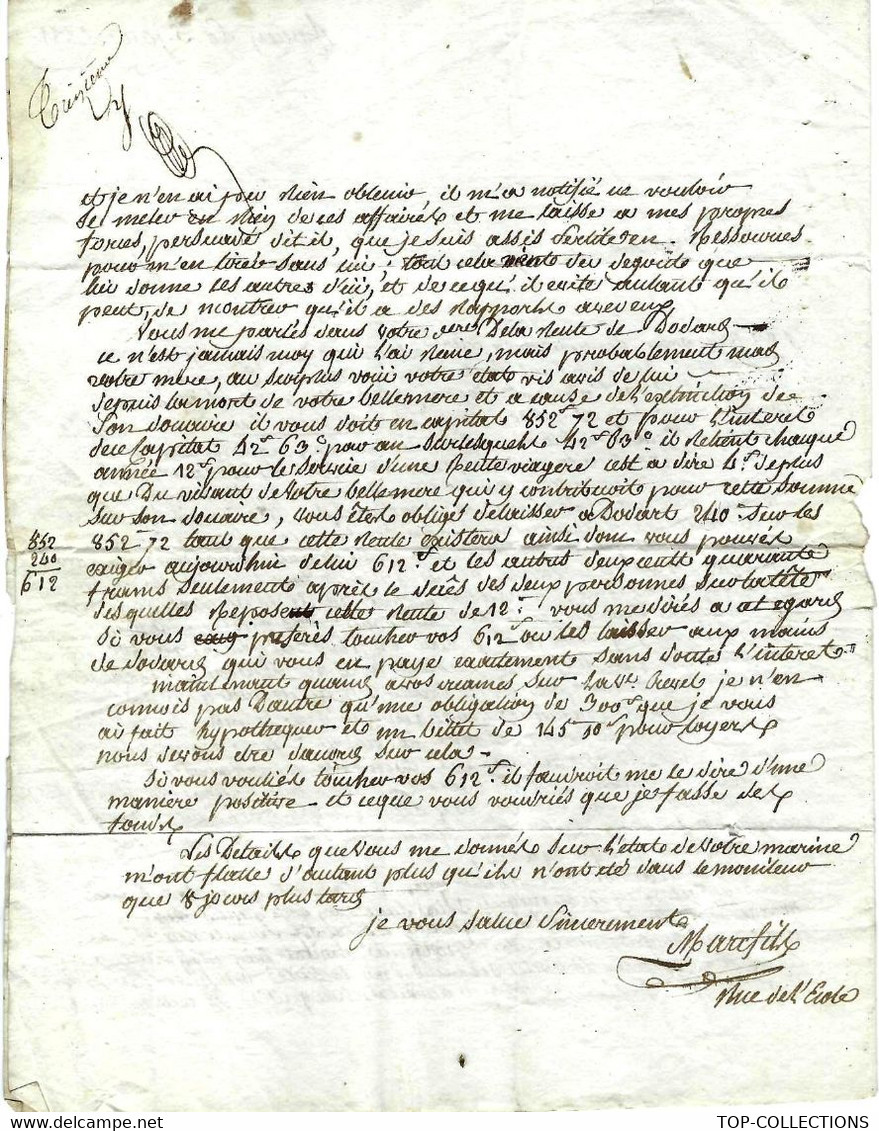 et je n'en ai pu rien obtenir il m'a notifié ne vouloir
se meler en rien de ces affaires et me laisse a mes propres
forces, persuadé dit il, que je suis assis fertile en Ressources
pour m'en tirer sans lui, tout cela vient des degouts que
lui donne les autres d'ici, et de cequ'il evite autant qu'il
peut, de montrer qu'il a des Rapports avec eux
Vous me parlés dans votre de la Rente de Dodard
ce n'est jamais moy qui l'ai Reniée, mais probablement mad
votre mere, au surplus voici votre etat vis avis de lui
depuis la mort de votre bellemere et a cause de l'extinction de
son douaire il vous doit en capital 852 72 et pour l'interet
de ce Capital 42 63 par an sur lesquels 42 63 il Retient chaque
année 12 pour le service d'une Rente viagere cest a dire 4 de plus
que Du vivant de votre bellemere qui y contribuoit pour cette somme
sur son douaire, vous êtes obligé delaisser a Dodart 240 sur les
852 72 tant que cette Rente existera ainsi donc vous pouvez
exiger aujourdhui de lui 612 et les autres deux cent quarante
francs seulement après le décès des deux personnes sur la tête
desquelles Repose cette Rente de 12 vous me dirés a cet egard
Si vous preferés toucher vos 612 ou les laisser aux mains
de dodard qui vous en paye exactement sans doute l'interet
maintenant quand a vos creances sur je n'en
connois pas Dautre qu'une obligation de 300 que je vous
ai fait hypothequer et un billet de 145 10 pour loyers
nous serons d'accord sur cela
Si vous vouliés toucher vos 612 il faudroit me le dire d'une
maniere positive et ceque vous voudriés que je fasse des
fonds
Les Details que vous me donnés sur l'etat de votre marine
m'ont flatté d'autant plus qu'ils n'ont été dans le moniteur
que 8 jours plus tard
je vous salue Sincerement
Marc fils
Rue de l'Ecole
852
240
612
TOP-COLLECTIONS